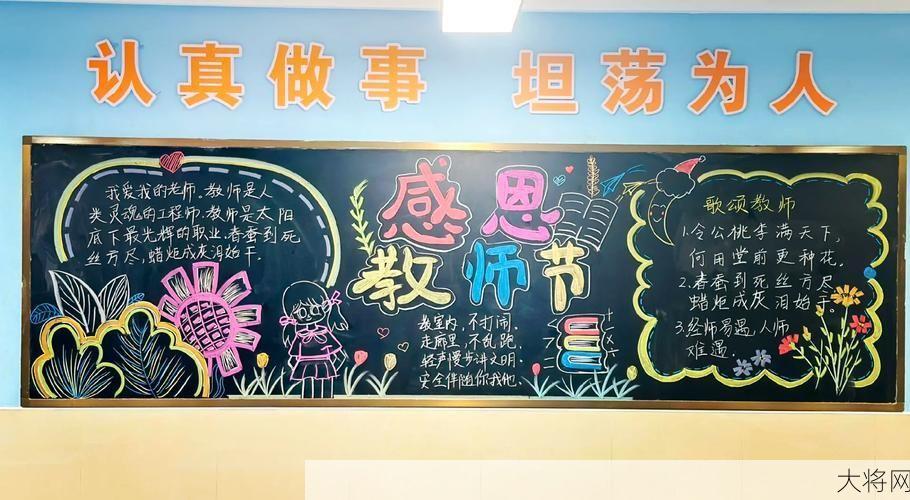 认真做事 坦荡为人
我爱我的老师。教师是人
类灵魂的工程师。教师是太阳
底下最光辉的职业。春蚕到死
丝方尽，蜡炬成灰泪始干。
感恩
教师节
教室内，不打闹。
走廊里，不乱跑。
轻声慢步讲文明。
安全伴随你我他。
歌颂教师
1.令公桃李满天下，
何用堂前更种花。
2.春蚕到死丝方尽
蜡炬成灰泪始干
3.经师易遇，人师
难遇
大将网